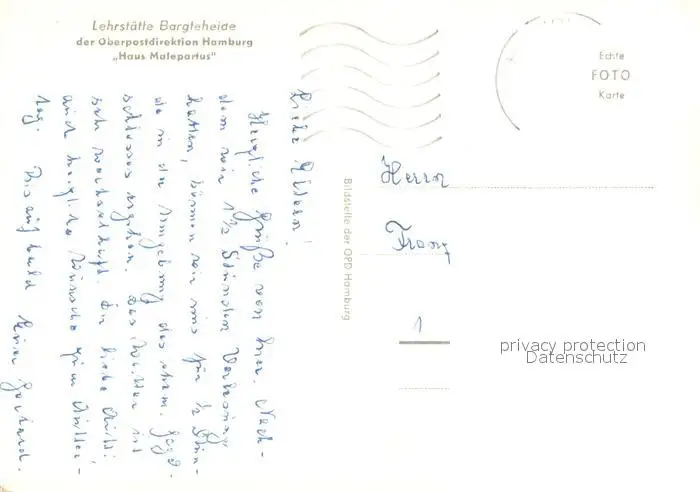 Lehrstätte Bargteheide
der Oberpostdirektion Hamburg
„Haus Malepartus"
Liebe Eltern!
Herzliche Grüße von hier. Nach-
dem wir 1½ Stunden Vorlesung
hatten, können wir uns für ½ Stun-
de in der Umgebung des ehem. Jagd-
schlosses ergehen. Das Wetter ist
sehr wechselhaft. Dir liebe Mutti
auch herzliche Wünsche zum Mutter-
tag. Bis auf bald Euer Gerhard.
Bildstelle der OPD Hamburg
Echte
FOTO
Karte
Herrn
Franz
1
privacy protection
Datenschutz